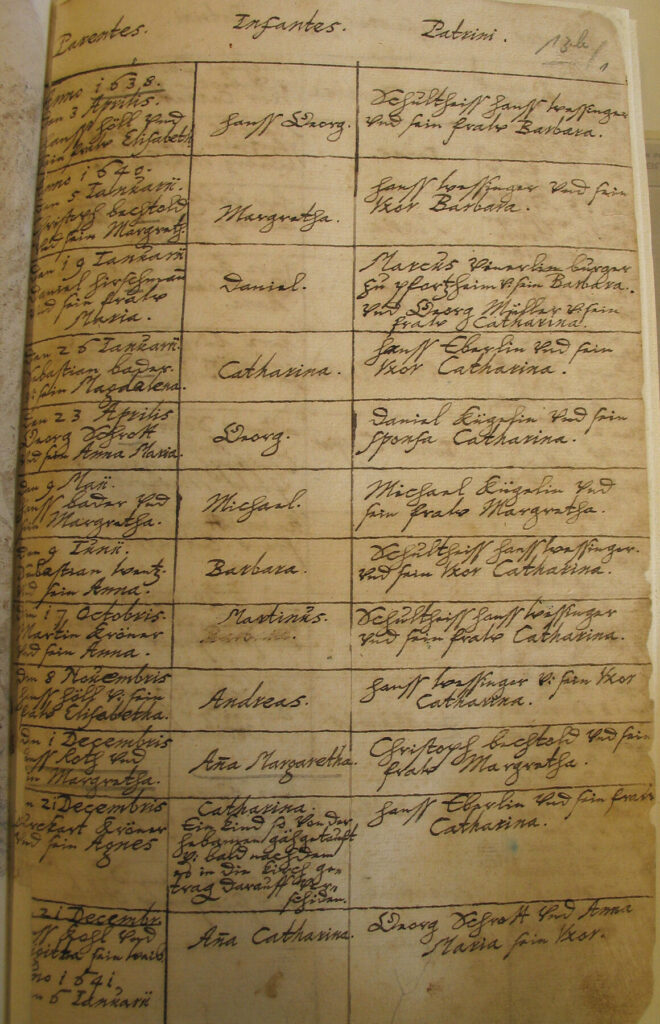 Parentes. Infantes. Patrini.
Anno 1638.
den 3 Aprilis.
Hanss Höll Vnd
sein fraw Elisabeth
Hanss Georg.
Schultheiss Hanss Wessinger
vnd sein fraw Barbara.
Anno 1640.
den 5 Ianuarii.
Christoph Bechtold
vnd sein Margretha.
Margretha.
Hanss Wessinger Vnd sein
Vxor Barbara.
Den 19 Ianuarii
Daniel Hirschmann
vnd sein fraw
Maria.
Daniel.
Marcus burger
zu Pfortzheim v. sein Barbara.
vnd Georg Müller v. sein
fraw Catharina.
Den 26 Ianuarii.
Sebastian bader
v. sein Magdalena.
Catharina.
Hanss Eberlin Vnd sein
Vxor Catharina.
Den 23 Aprilis
Georg Schrott
vnd sein Anna Maria.
Georg.
Daniel Kügelin Vnd sein
sponsa Catharina.
Den 9 Maii.
Hanss bader vnd
sein Margretha.
Michael.
Michael Kügelin Vnd
sein fraw Margretha.
Den 9 Iunii.
Sebastian Wentz
vnd sein Anna.
Barbara.
Schultheiss Hanss Wessinger.
vnd sein Vxor Catharina.
Den 17 Octobris
Martin Kröner
vnd sein Anna.
Martinus.
Schultheiss Hanss Wessinger
vnd sein fraw Catharina.
Den 8 Nouembris
Hanss Höll v. sein
fraw Elisabetha.
Andreas.
Hanss Wessinger v. sein Vxor
Catharina.
Den 1 Decembris
Hanss Roth vnd
sein Margretha.
Aña Margaretha.
Christoph Bechtold Vnd sein
fraw Margretha.
Den 21 Decembris
Kröner
vnd sein Agnes
Catharina.
Ein Kind so von der
hebamen gähgetaufft
v. bald nachdem
es in die Kirch ge-
trag darauff ver-
schiden.
Hanss Eberlin Vnd sein fraw
Catharina.
21 Decembr.
Hanss Kohl vnd
sein weib
Aña Catharina.
Georg Schrott Vnd Anna
Maria sein Vxor.
Anno 1641
Den 6 Ianuarii